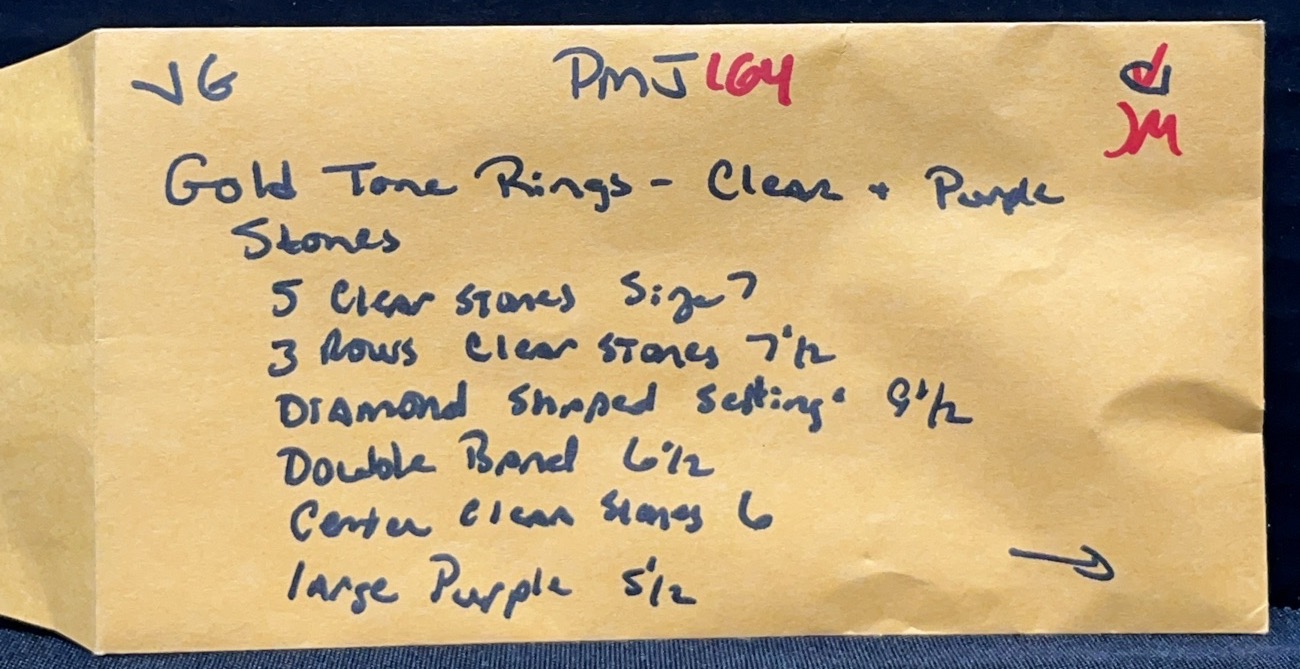 VG PMJ 164
JM
Gold Tone Rings - Clear + Purple
Stones
5 Clear stones Size 7
3 Rows Clear stones 7 1/2
Diamond Shaped Setting 9 1/2
Double Band 6 1/2
Center Clear Stones 6
large Purple 5 1/2
→